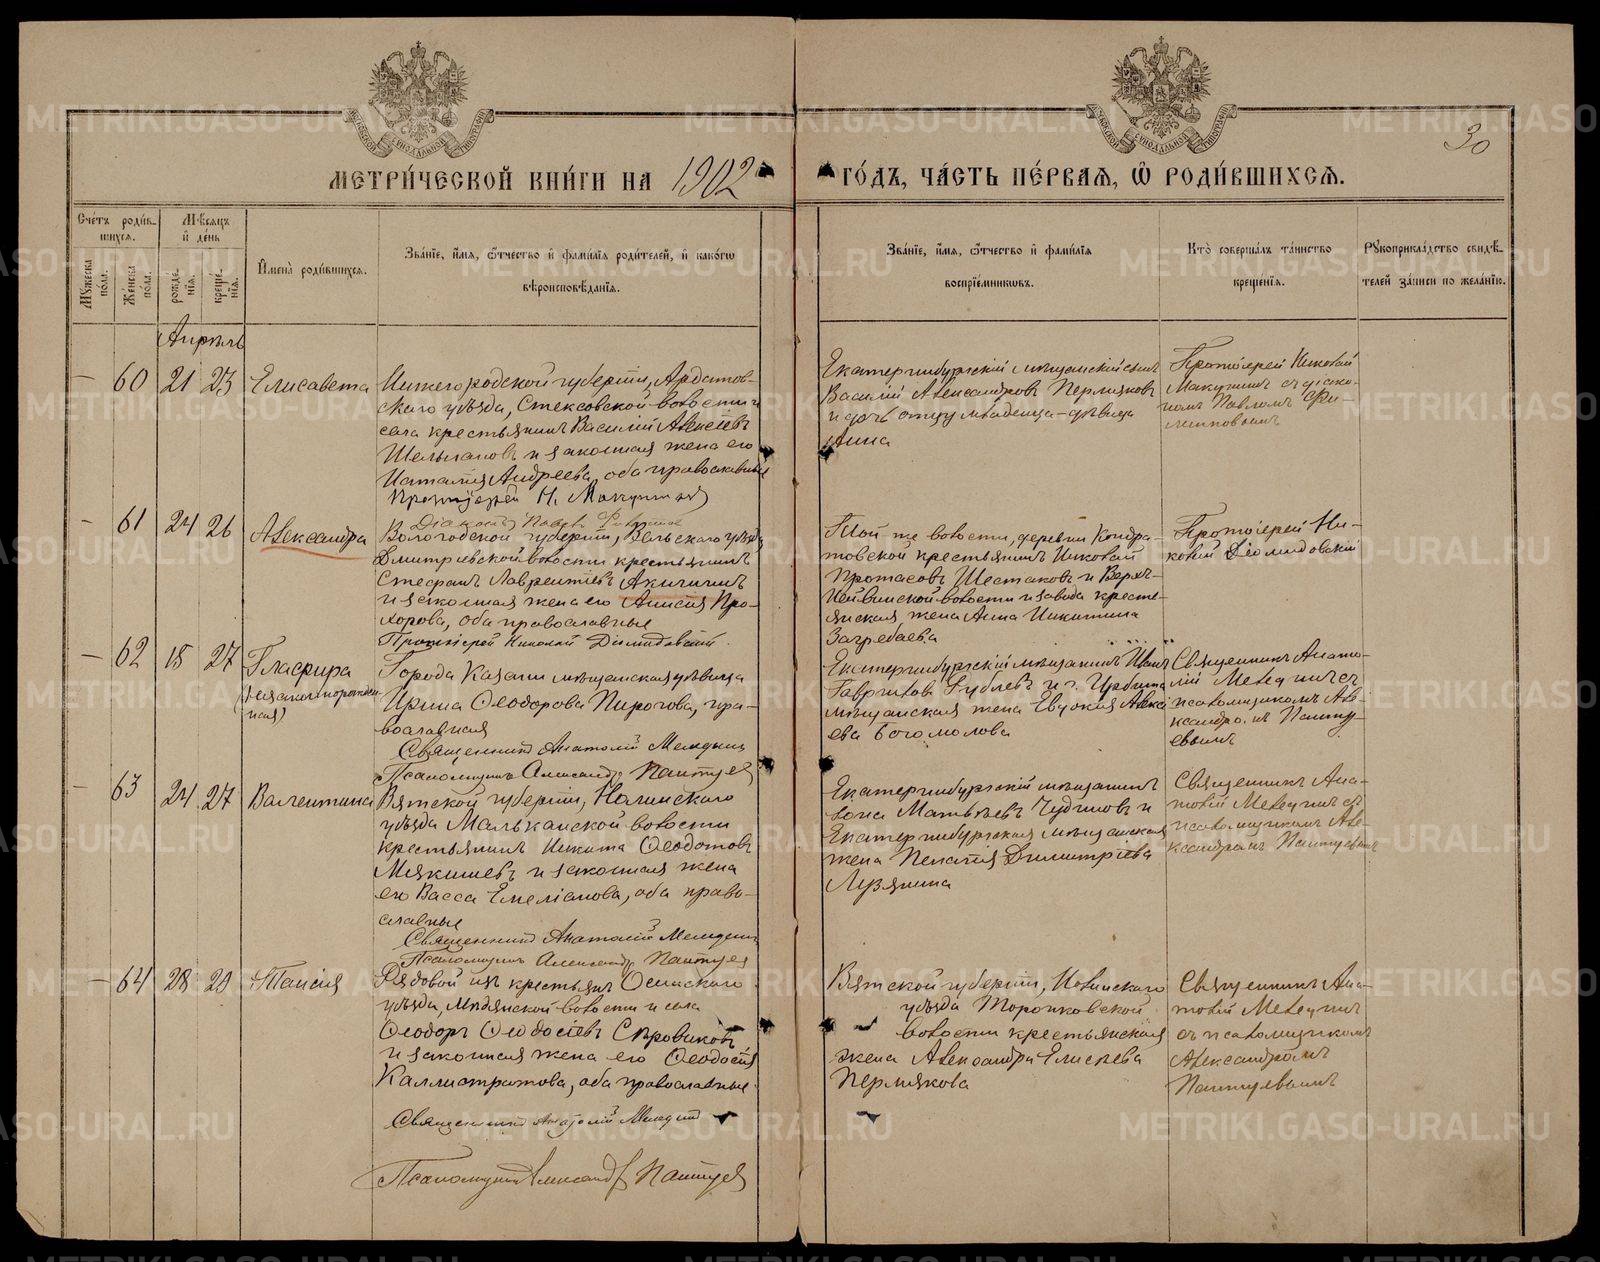 МЕТРИ́ЧЕСКОЙ КНИ́ГИ НА 1902
ГО́ДЪ, ЧА́СТЬ ПЕ́РВАЯ, Ѡ РОДИ́ВШИХСЯ.
30
Сче́тъ роди́в-
шихся.
Мѣ́сяцъ
и҆ де́нь
Му́жеска по́ла.
Же́нска по́ла.
рожде́-
нїя.
креще́-
нїя.
И҆мена̀ роди́вшихся.
Зва́нїе, и҆́мя, ѻ҆́тчество и҆ фами́лїя роди́телей, и҆ како́гѡ
вѣроисповѣ́данїя.
Зва́нїе, и҆́мя, ѻ҆́тчество и҆ фами́лїя
воспрїе́мниковъ.
Кто̀ соверша́лъ та́инство
креще́нїя.
Рукоприкла́дство свидѣ́-
телей за́писи по жела́нїю.
Апрѣль
– 60 21 23 Елисавета
Нижегородской губерніи, Ардатов-
скаго уѣзда, Стексовской волости и
села крестьянинъ Василій Алексѣевъ
и законная жена его
Наталія Андреева, оба православные
Протоіерей Н. Макушинъ
Діаконъ Павелъ
Екатеринбургскій мѣщанскій сынъ
Василій Александровъ Пермяковъ
и дочь отцу младенца – дѣвица
Анна
Протоіерей Николай
Макушинъ съ діако-
номъ Павломъ Фи-
липповымъ
– 61 24 26 Александра
Вологодской губерніи, Вельскаго уѣзда,
Дмитріевской волости крестьянинъ
Стефанъ Лаврентіевъ Акиничинъ
и законная жена его Анисія Про-
хорова, оба православные
Протоіерей Николай Діомидовскій.
Той же волости, деревни Кондра-
товской крестьянинъ Николай
Протасовъ Шестаковъ и Верх-
Нейвинской волости и завода кресть-
янская жена Анна Никитина
Загребаева
Протоіерей Ни-
колай Діомидовскій
– 62 15 27 Глафира
(незаконнорожден-
ная)
Города Казани мѣщанская дѣвица
Ирина Ѳеодорова Пирогова, пра-
вославная
Священникъ Анатолій Мелединъ
Псаломщикъ Александръ Пантуевъ
Екатеринбургскій мѣщанинъ Иванъ
Гавриловъ и г. Ирбита
мѣщанская жена Евдокія Алексѣ-
ева Богомолова
Священникъ Анато-
лій Мелединъ съ
псаломщикомъ Але-
ксандромъ Панту-
евымъ
– 63 24 27 Валентина
Вятской губерніи, Нолинскаго
уѣзда Малыканской волости
крестьянинъ Никита Ѳеодотовъ
Мякишевъ и законная жена
его Васса Емеліанова, оба право-
славные
Священникъ Анатолій Мелединъ
Псаломщикъ Александръ Пантуевъ
Екатеринбургскій мѣщанинъ
Іона Матвѣевъ Чудиновъ и
Екатеринбургская мѣщанская
жена Пелагія Димитріева
Лузянина
Священникъ Ана-
толій Мелединъ съ
псаломщикомъ Але-
ксандромъ Пантуевымъ
– 64 28 29 Таисія
Рядовой изъ крестьянъ Осинскаго
уѣзда, Медянской волости и села
Ѳеодоръ Ѳеодосіевъ Суровиковъ
и законная жена его Ѳеодосія
Каллистратова, оба православные.
Священникъ Анатолій Мелединъ
Псаломщикъ Александръ Пантуевъ
Вятской губерніи, Нолинскаго
уѣзда Торопковской
волости крестьянская
жена Александра Елисѣева
Пермякова
Священникъ Ана-
толій Мелединъ
съ псаломщикомъ
Александромъ
Пантуевымъ
METRIKI.GASO-URAL.RU